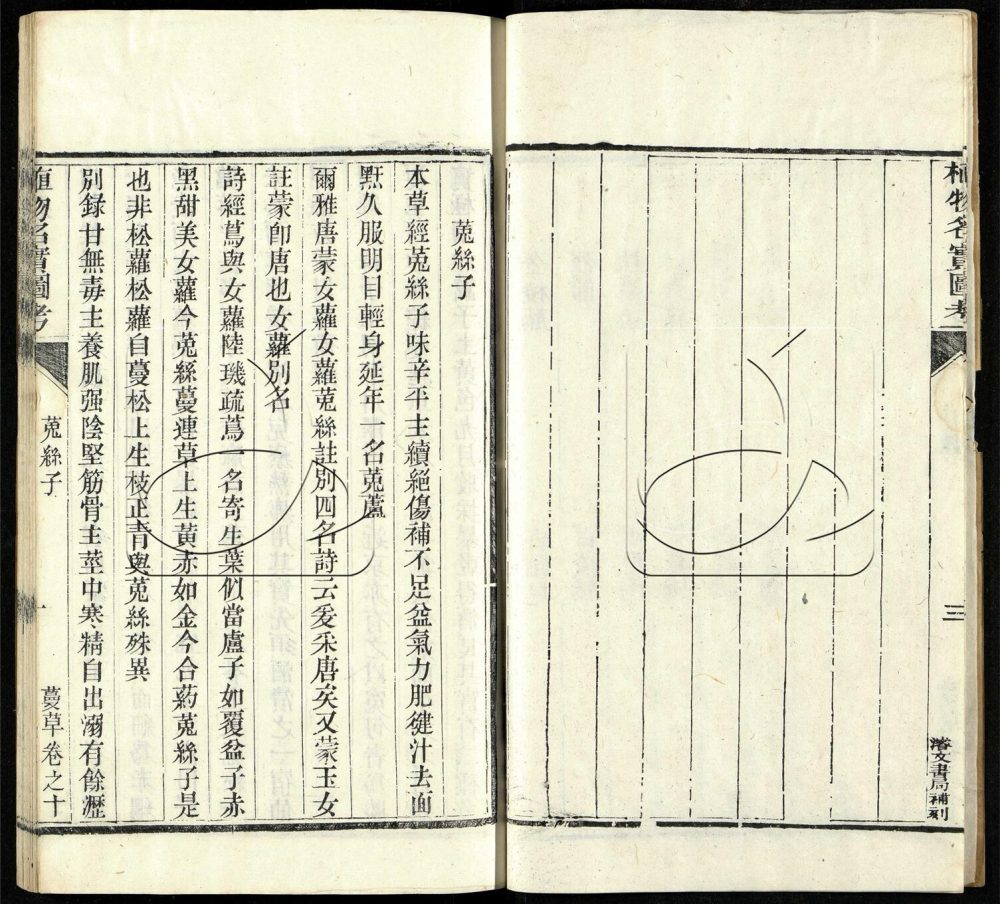 植物名實圖考
三
濬文書局補刻
菟絲子
本草經菟絲子味辛平主續絕傷補不足益氣力肥健汁去面
䵟久服明目輕身延年一名菟蘆
爾雅唐蒙女蘿女蘿菟絲註別四名詩云爰采唐矣又蒙玉女
註蒙卽唐也女蘿別名
詩經蔦與女蘿陸璣疏蔦一名寄生葉似當盧子如覆盆子赤
黑甜美女蘿今菟絲蔓連草上生黃赤如金今合藥菟絲子是
也非松蘿松蘿自蔓松上生枝正青與菟絲殊異
別録甘無毒主養肌强陰堅筋骨主莖中寒精自出溺有餘瀝
植物名實圖考
菟絲子
一
蔓草卷之十